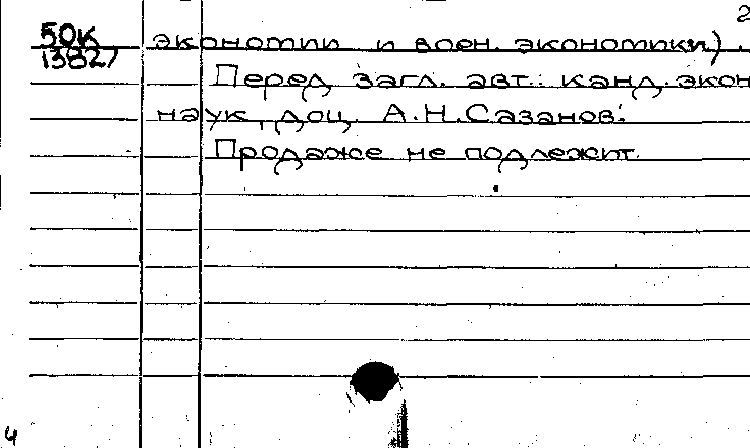 2
50к
13827
экономии и воен. экономики).
Перед загл. авт.: канд. экон
наук, доц. А.Н.Сазанов.
Продаже не подлежит.
4